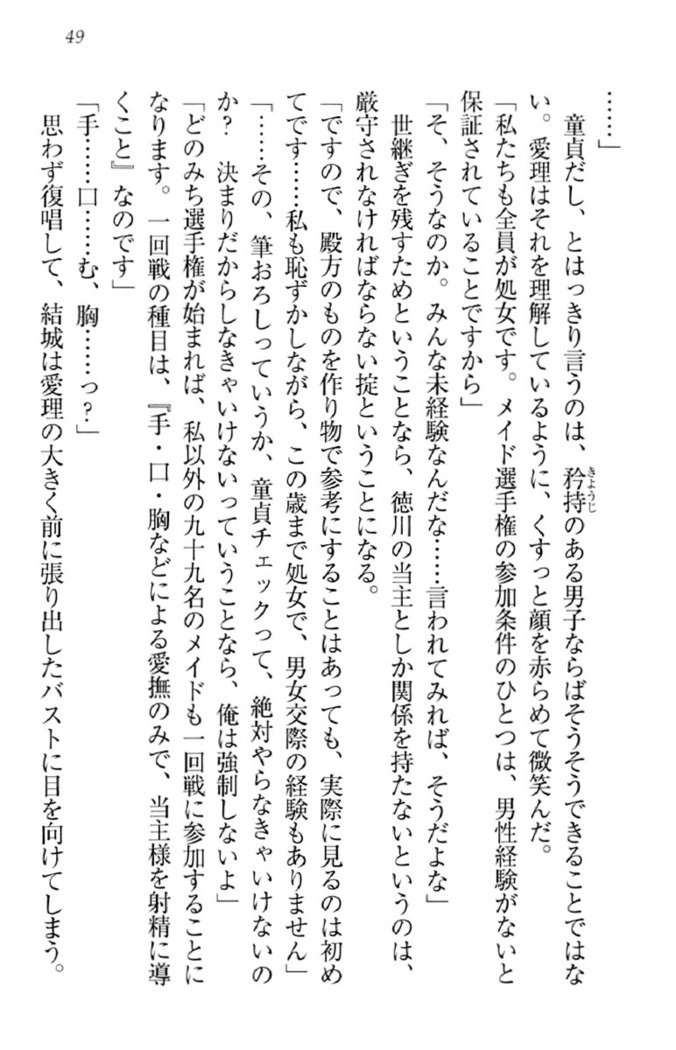 49
……」
　童貞だし、とはっきり言うのは、矜持のある男子ならばそうそうできることではな
きょうじ
い。愛理はそれを理解しているように、くすっと顔を赤らめて微笑んだ。
「私たちも全員が処女です。メイド選手権の参加条件のひとつは、男性経験がないと
保証されていることですから」
「そ、そうなのか。みんな未経験なんだな……言われてみれば、そうだよな」
　世継ぎを残すためということなら、徳川の当主としか関係を持たないというのは、
厳守されなければならない掟ということになる。
「ですので、殿方のものを作り物で参考にすることはあっても、実際に見るのは初め
てです……私も恥ずかしながら、この歳まで処女で、男女交際の経験もありません」
「……その、筆おろしっていうか、童貞チェックって、絶対やらなきゃいけないの
か？　決まりだからしなきゃいけないっていうことなら、俺は強制しないよ」
「どのみち選手権が始まれば、私以外の九十九名のメイドも一回戦に参加することに
なります。一回戦の種目は、『手・口・胸などによる愛撫のみで、当主様を射精に導
くこと』なのです」
「手……口……む、胸……っ？」
　思わず復唱して、結城は愛理の大きく前に張り出したバストに目を向けてしまう。